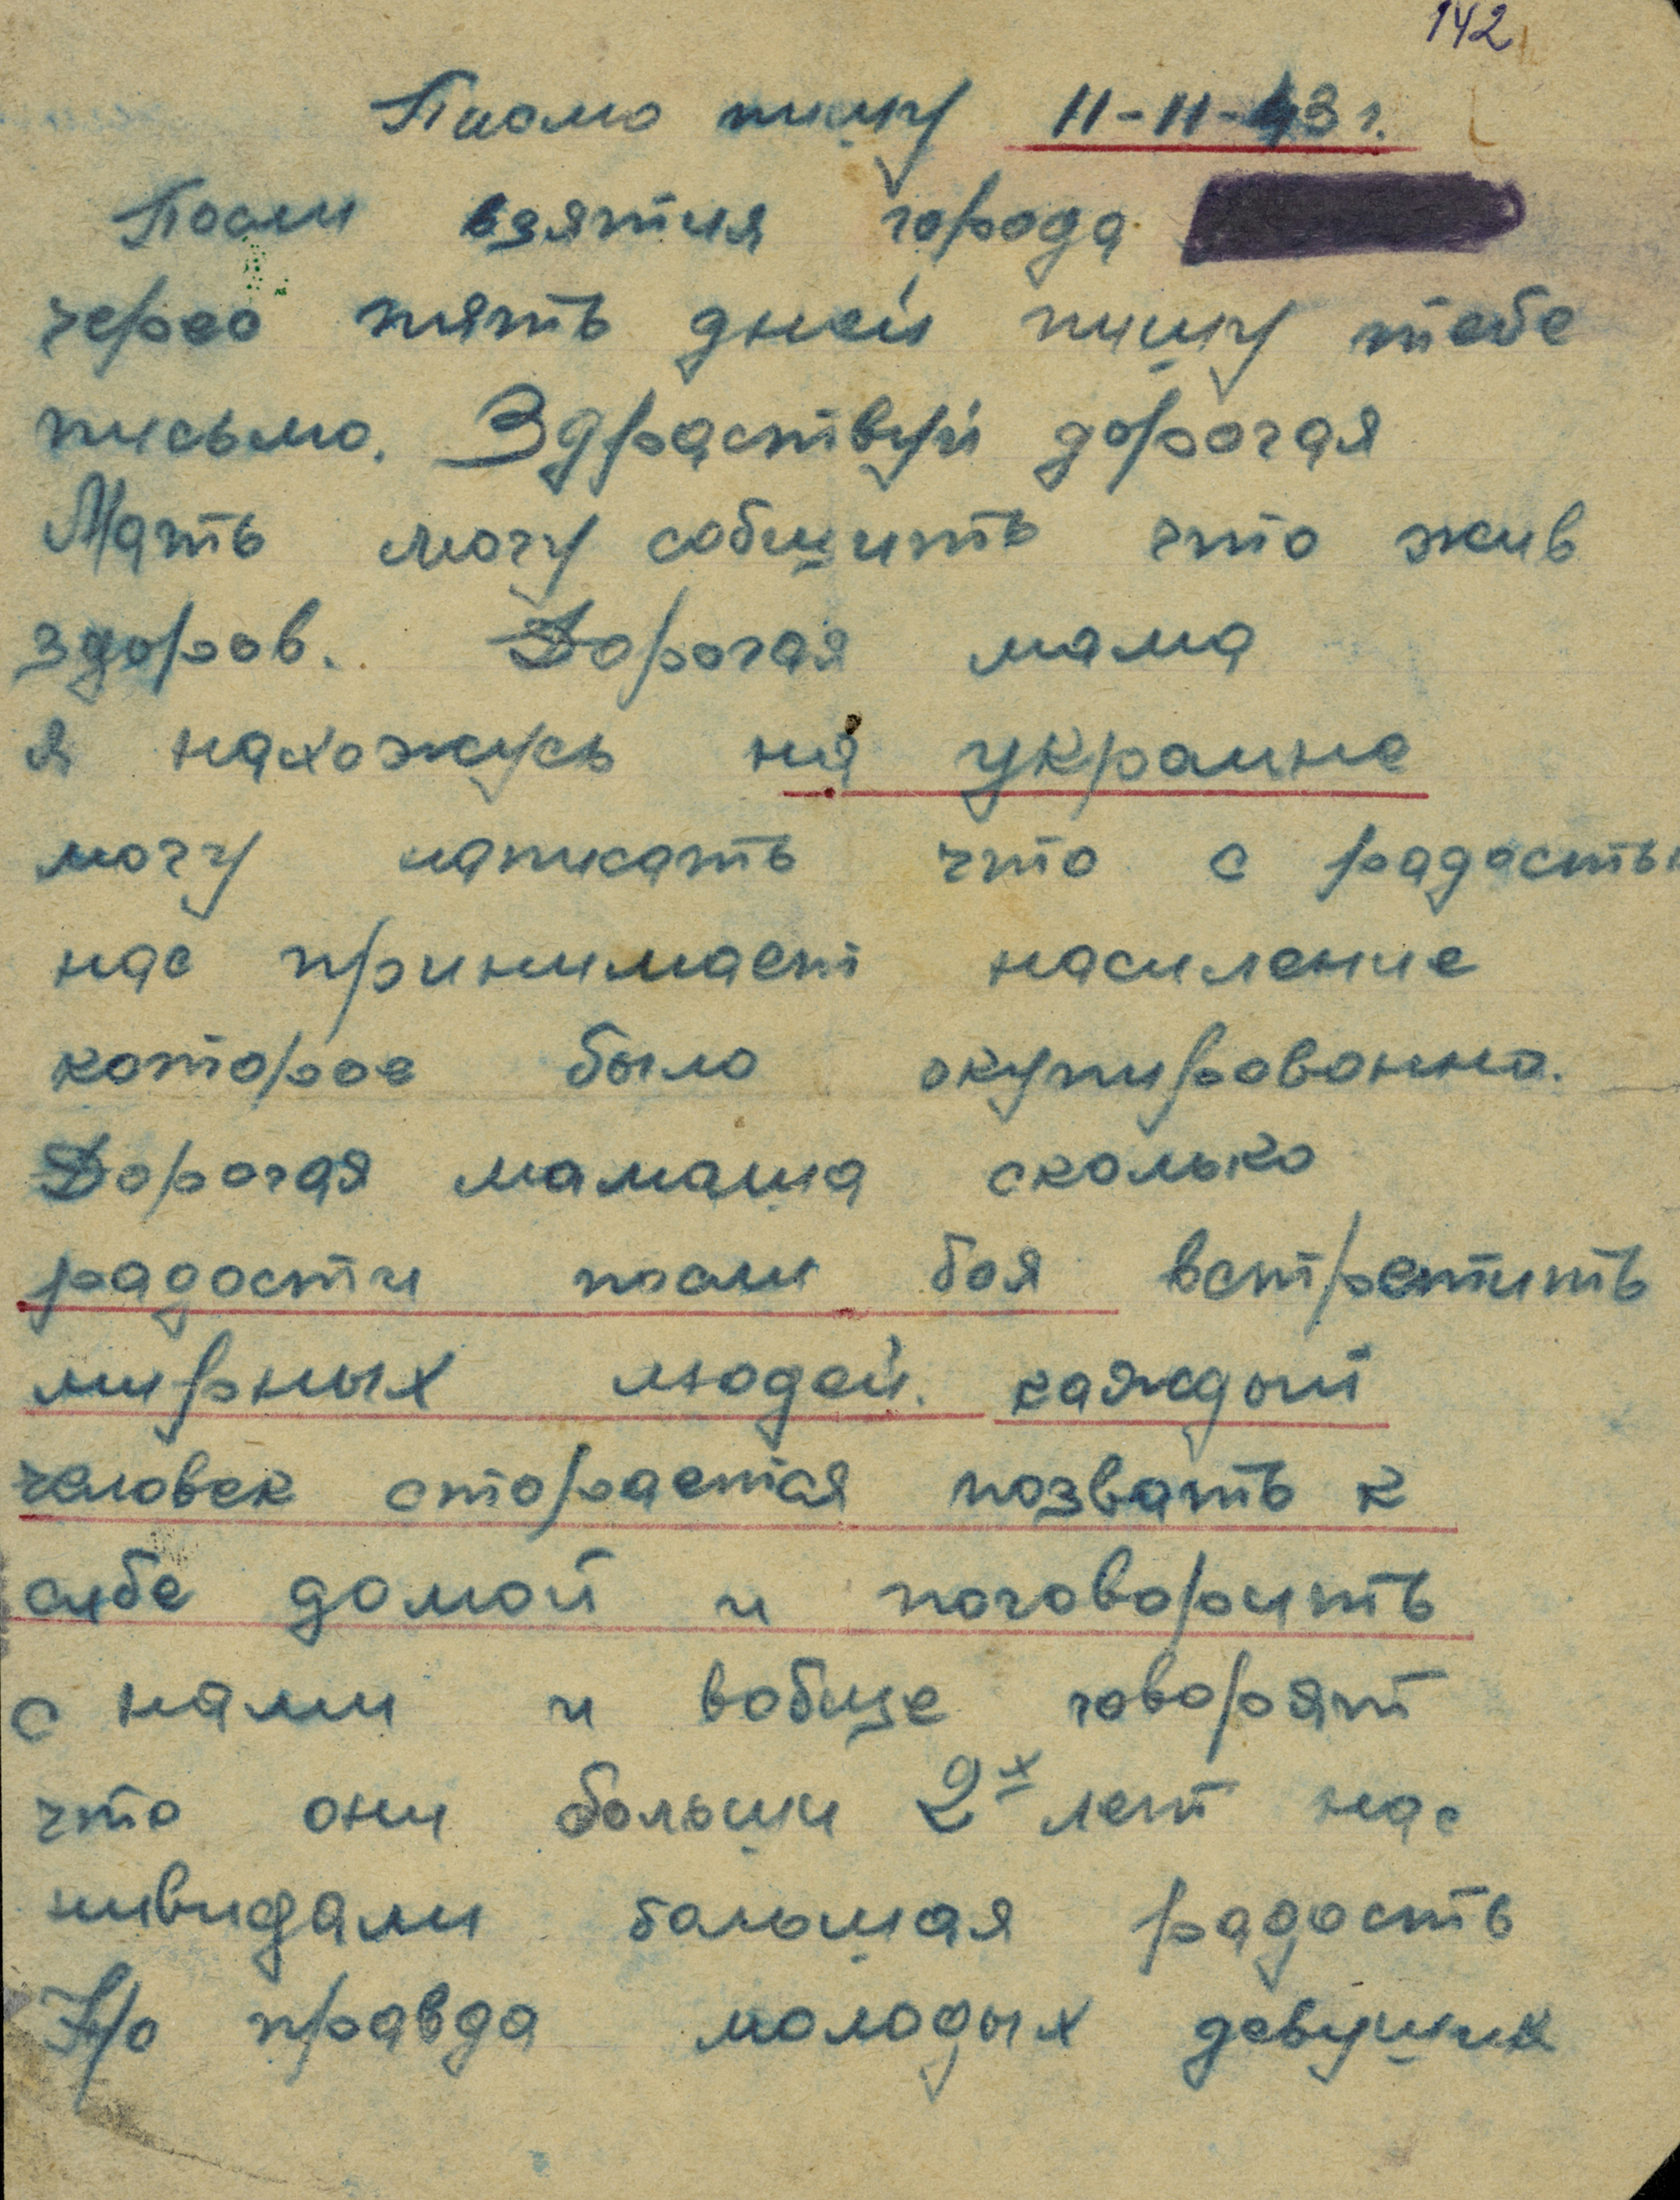 142
Писмо пишу 11-11-43 г.
Посли взятия города
через пять дней пишу тебе
письмо. Здраствуй дорогая
Мать могу собщить что жив
здоров. Дорогая мама
я нахожусь на украине
могу написать что с радостью
нас принимает насиление
которое было окупированно.
Дорогая мамаша сколько
радости посли боя встретить
мирных людей. каяждый
человек сторается позвать к
сибе домой и поговорить
с нами и вобще говорят
что они больши 2х лет нас
нивидали большая радость
Но правда молодых девушик